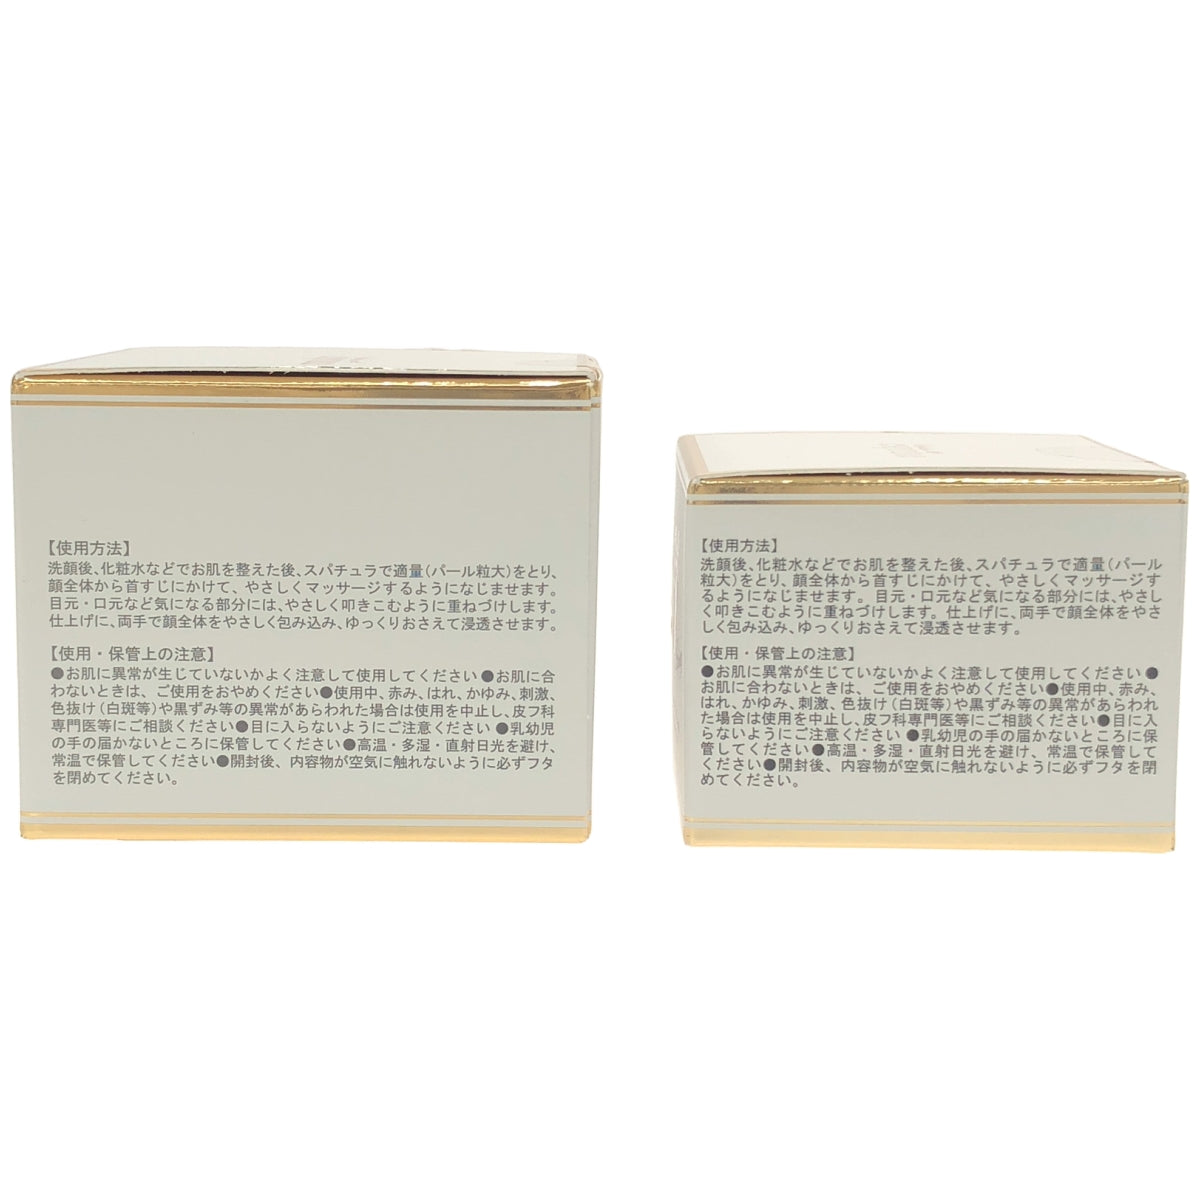 【使用方法】
洗顔後、化粧水などでお肌を整えた後、スパチュラで適量(パール粒大)をとり、
顔全体から首すじにかけて、やさしくマッサージするようになじませます。
目元・口元など気になる部分には、やさしく叩きこむように重ねづけします。
仕上げに、両手で顔全体をやさしく包み込み、ゆっくりおさえて浸透させます。
【使用・保管上の注意】
●お肌に異常が生じていないかよく注意して使用してください ●お肌に合
わないときは、ご使用をおやめください●使用中、赤み、はれ、かゆみ、刺激、
色抜け(白斑等)や黒ずみ等の異常があらわれた場合は使用を中止し、皮フ科
専門医等にご相談ください●目に入らないようにご注意ください ●乳幼児
の手の届かないところに保管してください●高温・多湿・直射日光を避け、
常温で保管してください●開封後、内容物が空気に触れないように必ずフタ
を閉めてください。
【使用方法】
洗顔後、化粧水などでお肌を整えた後、スパチュラで適量(パール
粒大)をとり、顔全体から首すじにかけて、やさしくマッサージす
るようになじませます。目元・口元など気になる部分には、やさし
く叩きこむように重ねづけします。仕上げに、両手で顔全体をやさ
しく包み込み、ゆっくりおさえて浸透させます。
【使用・保管上の注意】
●お肌に異常が生じていないかよく注意して使用してください ●
お肌に合わないときは、ご使用をおやめください●使用中、赤み、
はれ、かゆみ、刺激、色抜け(白斑等)や黒ずみ等の異常があらわれ
た場合は使用を中止し、皮フ科専門医等にご相談ください●目に入
らないようにご注意ください ●乳幼児の手の届かないところに保
管してください●高温・多湿・直射日光を避け、常温で保管して
ください●開封後、内容物が空気に触れないように必ずフタを閉
めてください。